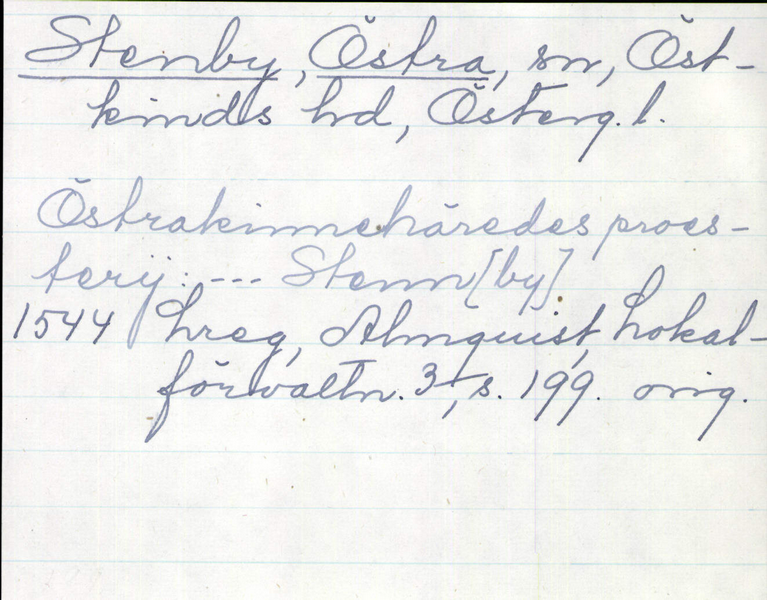 Stenby, Östra, sn, Öst-
kinds hd, Österg. l.
Östrakinnehäredes proes-
terij: --- Stenn[by]
1544 Lreg, Almquist, Lokal-
förvaltn. 3, s. 199. orig.